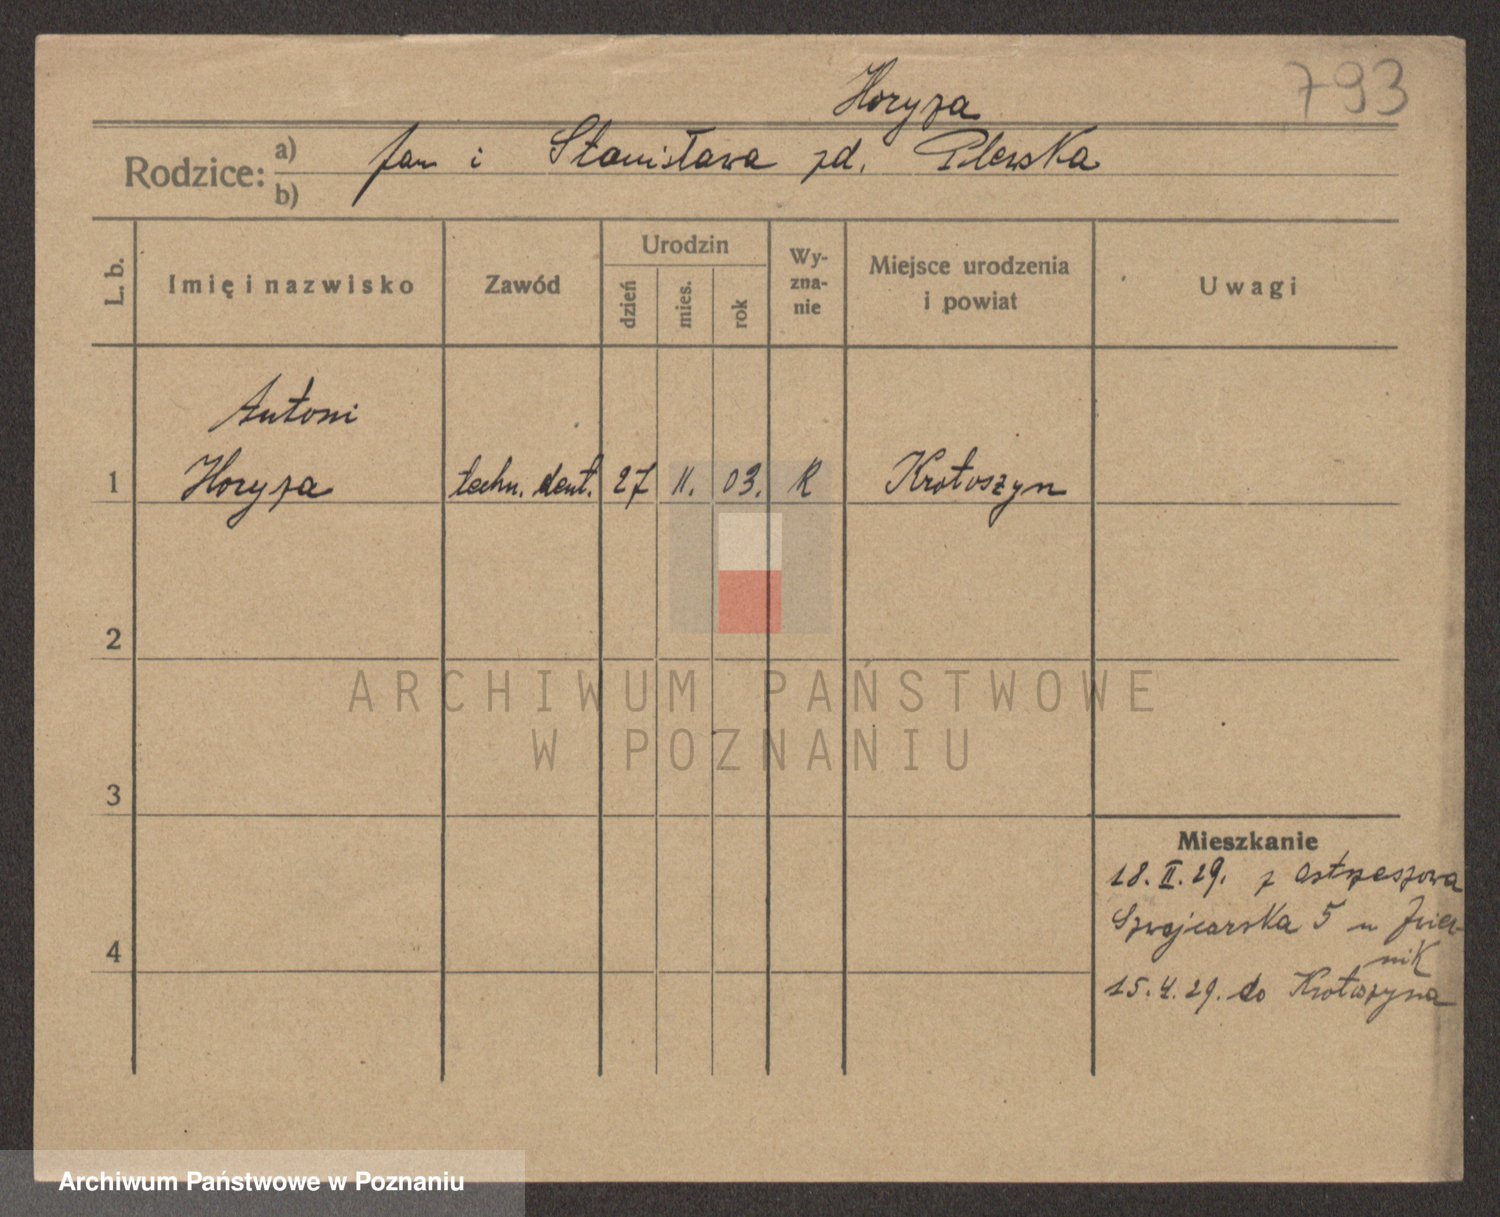 793
Horyza
Rodzice: a) b) Jan i Stanisława zd. Plewska
L. b. Imię i nazwisko Zawód Urodzin dzień mies. rok Wyzna-nie Miejsce urodzenia i powiat Uwagi
Antoni
1 Horyza techn. dent. 27 II. 03. R Krotoszyn
2
3
4
Mieszkanie
18. II. 29. z Ostrzeszowa
Szwajcarska 5 u
15. 4. 29. do Krotoszyna
ARCHIWUM PAŃSTWOWE
W POZNANIU
Archiwum Państwowe w Poznaniu